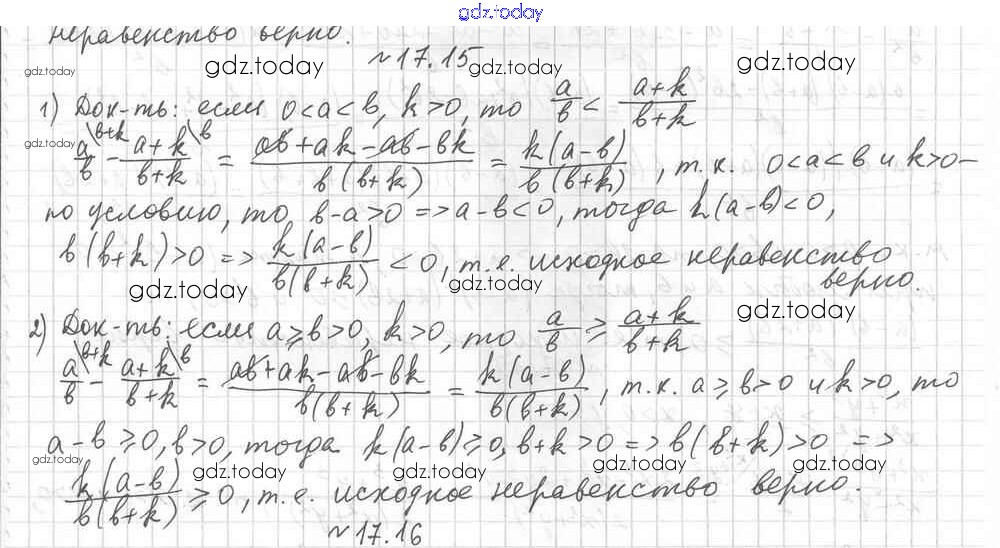 gdz.today
неравенство верно.
№17.15
gdz.today gdz.today gdz.today
gdz.today
1) Док-ть: если 0<a<b, k>0, то a/b < (a+k)/(b+k)
gdz.today
a/b \b+k - (a+k)/(b+k) \b = (ab+ak-ab-bk)/(b(b+k)) = k(a-b)/(b(b+k)), т.к. 0<a<b и k>0-
по условию, то b-a>0 => a-b<0, тогда k(a-b)<0,
b(b+k)>0 => k(a-b)/(b(b+k)) < 0, т.е. исходное неравенство
верно.
gdz.today gdz.today gdz.today
2) Док-ть: если a≥b>0, k>0, то a/b ≥ (a+k)/(b+k)
a/b \b+k - (a+k)/(b+k) \b = (ab+ak-ab-bk)/(b(b+k)) = k(a-b)/(b(b+k)), т.к. a≥b>0 и k>0, то
a-b≥0, b>0, тогда k(a-b)≥0, b+k>0 => b(b+k)>0 =>
gdz.today gdz.today gdz.today gdz.today gdz.today
k(a-b)/(b(b+k)) ≥ 0, т.е. исходное неравенство верно.
№17.16